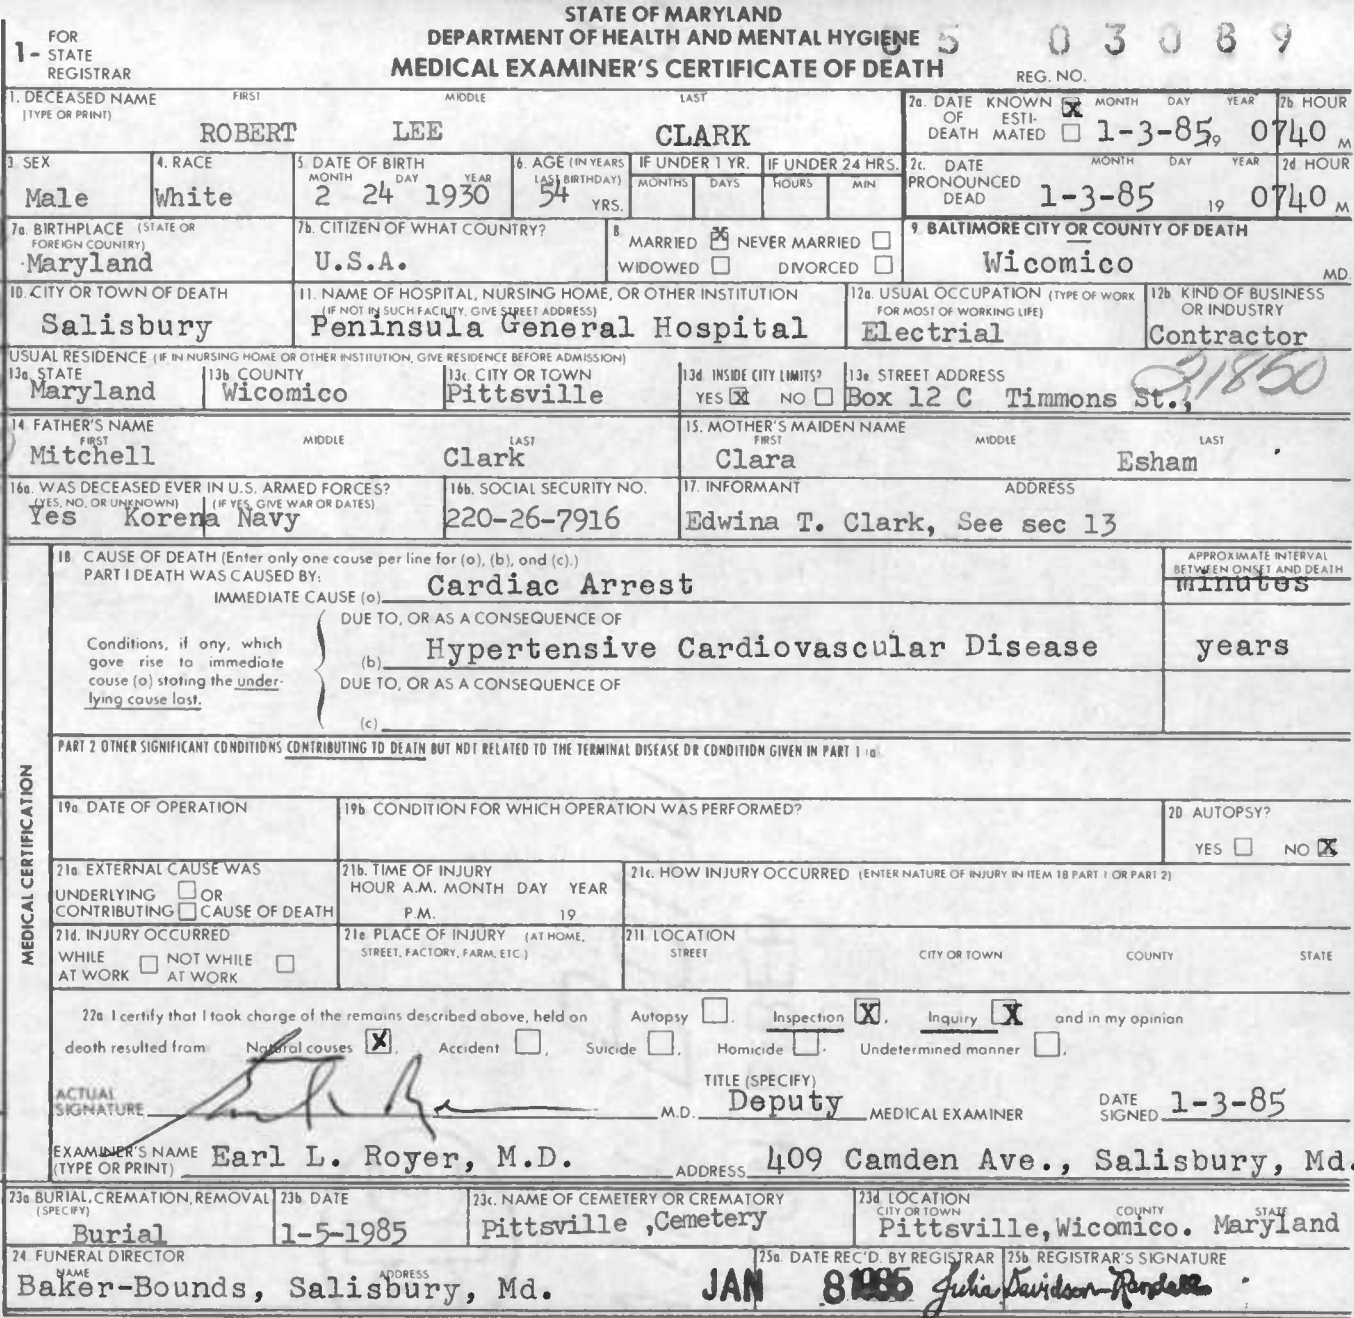 STATE OF MARYLAND
DEPARTMENT OF HEALTH AND MENTAL HYGIENE
MEDICAL EXAMINER'S CERTIFICATE OF DEATH
1- FOR STATE REGISTRAR
85 03089
REG. NO.
1. DECEASED NAME (TYPE OR PRINT) FIRST MIDDLE LAST
ROBERT LEE CLARK
2a. DATE OF DEATH KNOWN X ESTIMATED MONTH DAY YEAR 1-3-85, 2b HOUR 0740 M
3. SEX Male
4. RACE White
5. DATE OF BIRTH MONTH DAY YEAR 2 24 1930
6. AGE (IN YEARS LAST BIRTHDAY) 54 YRS.
IF UNDER 1 YR. MONTHS DAYS
IF UNDER 24 HRS. HOURS MIN
2c. DATE PRONOUNCED DEAD MONTH DAY YEAR 1-3-85 19 2d HOUR 0740 M
7a. BIRTHPLACE (STATE OR FOREIGN COUNTRY) Maryland
7b. CITIZEN OF WHAT COUNTRY? U.S.A.
8. MARRIED X NEVER MARRIED WIDOWED DIVORCED
9. BALTIMORE CITY OR COUNTY OF DEATH Wicomico MD.
10. CITY OR TOWN OF DEATH Salisbury
11. NAME OF HOSPITAL, NURSING HOME, OR OTHER INSTITUTION (IF NOT IN SUCH FACILITY, GIVE STREET ADDRESS) Peninsula General Hospital
12a. USUAL OCCUPATION (TYPE OF WORK FOR MOST OF WORKING LIFE) Electrial
12b KIND OF BUSINESS OR INDUSTRY Contractor
USUAL RESIDENCE (IF IN NURSING HOME OR OTHER INSTITUTION, GIVE RESIDENCE BEFORE ADMISSION)
13a. STATE Maryland
13b. COUNTY Wicomico
13c. CITY OR TOWN Pittsville
13d INSIDE CITY LIMITS? YES X NO
13e STREET ADDRESS Box 12 C Timmons St., 21850
14. FATHER'S NAME FIRST MIDDLE LAST Mitchell Clark
15. MOTHER'S MAIDEN NAME FIRST MIDDLE LAST Clara Esham
16a. WAS DECEASED EVER IN U.S. ARMED FORCES? (YES, NO, OR UNKNOWN) (IF YES, GIVE WAR OR DATES) Yes Korena Navy
16b. SOCIAL SECURITY NO. 220-26-7916
17. INFORMANT ADDRESS Edwina T. Clark, See sec 13
MEDICAL CERTIFICATION
18 CAUSE OF DEATH (Enter only one cause per line for (a), (b), and (c).)
APPROXIMATE INTERVAL BETWEEN ONSET AND DEATH
PART I DEATH WAS CAUSED BY:
IMMEDIATE CAUSE (a) Cardiac Arrest minutes
Conditions, if any, which gave rise to immediate cause (a) stating the underlying cause last.
DUE TO, OR AS A CONSEQUENCE OF
(b) Hypertensive Cardiovascular Disease years
DUE TO, OR AS A CONSEQUENCE OF
(c)
PART 2 OTHER SIGNIFICANT CONDITIONS CONTRIBUTING TO DEATH BUT NOT RELATED TO THE TERMINAL DISEASE OR CONDITION GIVEN IN PART 1 (a)
19a DATE OF OPERATION
19b CONDITION FOR WHICH OPERATION WAS PERFORMED?
20 AUTOPSY? YES NO X
21a EXTERNAL CAUSE WAS UNDERLYING OR CONTRIBUTING CAUSE OF DEATH
21b. TIME OF INJURY HOUR A.M. MONTH DAY YEAR P.M. 19
21c. HOW INJURY OCCURRED (ENTER NATURE OF INJURY IN ITEM 18 PART 1 OR PART 2)
21d. INJURY OCCURRED WHILE AT WORK NOT WHILE AT WORK
21e PLACE OF INJURY (AT HOME, STREET, FACTORY, FARM, ETC.)
21f LOCATION STREET CITY OR TOWN COUNTY STATE
22a I certify that I took charge of the remains described above, held on Autopsy , Inspection X , Inquiry X and in my opinion
death resulted from Natural causes X , Accident , Suicide , Homicide , Undetermined manner ,
ACTUAL SIGNATURE M.D. TITLE (SPECIFY) Deputy MEDICAL EXAMINER DATE SIGNED 1-3-85
EXAMINER'S NAME (TYPE OR PRINT) Earl L. Royer, M.D. ADDRESS 409 Camden Ave., Salisbury, Md.
23a BURIAL, CREMATION, REMOVAL (SPECIFY) Burial
23b DATE 1-5-1985
23c. NAME OF CEMETERY OR CREMATORY Pittsville ,Cemetery
23d LOCATION CITY OR TOWN COUNTY STATE Pittsville,Wicomico. Maryland
24 FUNERAL DIRECTOR NAME ADDRESS Baker-Bounds, Salisbury, Md.
25a. DATE REC'D. BY REGISTRAR JAN 8 1985
25b REGISTRAR'S SIGNATURE Julia Davidson-Randall